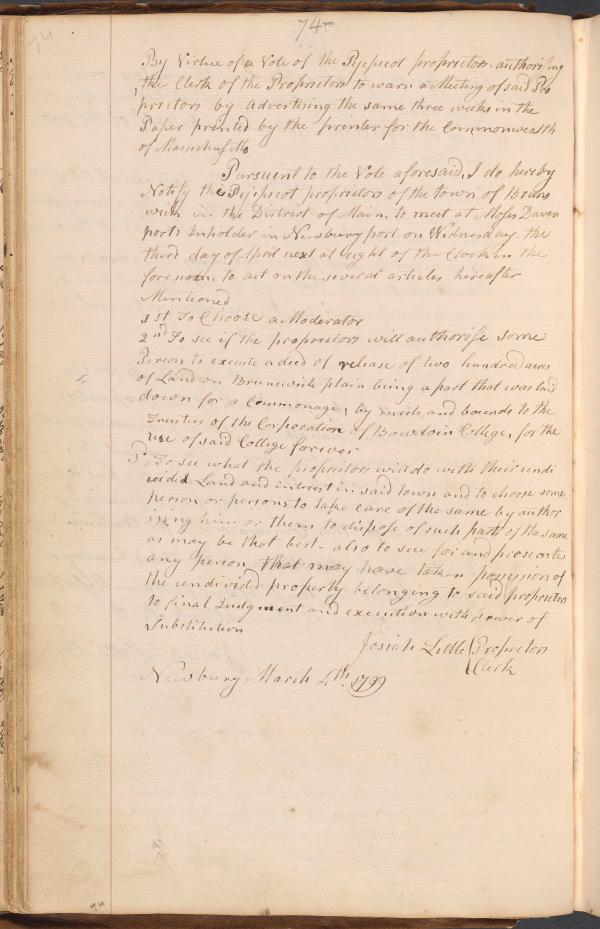 74
74
By Virtue of a Vote of the Pejepscot proprietors authorising
the Clerk of the Proprietors to warn a Meeting of said Pro
prietors by advertising the same three weeks in the
Paper printed by the printer for the Commonwealth
of Massachusetts
Pursuent to the Vote aforesaid, I do hereby
Notify the Pejepscot proprietors of the town of Bruns
wick in the District of Main to meet at Moses Daven
ports Inholder in Newburyport on Wednesday the
third day of April next at eight of the Clock in the
forenoon, to act on the several articles hereafter
Mentioned
1st To Choose a Moderator
2nd To see if the proprietors will authorise some
Person to execute a deed of release of two hundred acres
of Land on Brunswick plain being a part that was laid
down for a Commonage, by meets and bounds to the
Trustees of the Corporation of Bowdoin College, for the
use of said College forever
3d To see what the proprietors will do with their undi
vided Land and interest in said town and to choose some
person or persons to take care of the same by author
ising him or them to dispose of such part of the same
as may be that best - also to sue for and prosecute
any person that may have taken possession of
the undivided property belonging to said proprietors
to final Judgment and execution with power of
Substitution
Josiah Little Proprietors
Clerk
Newbury March 4th 1799